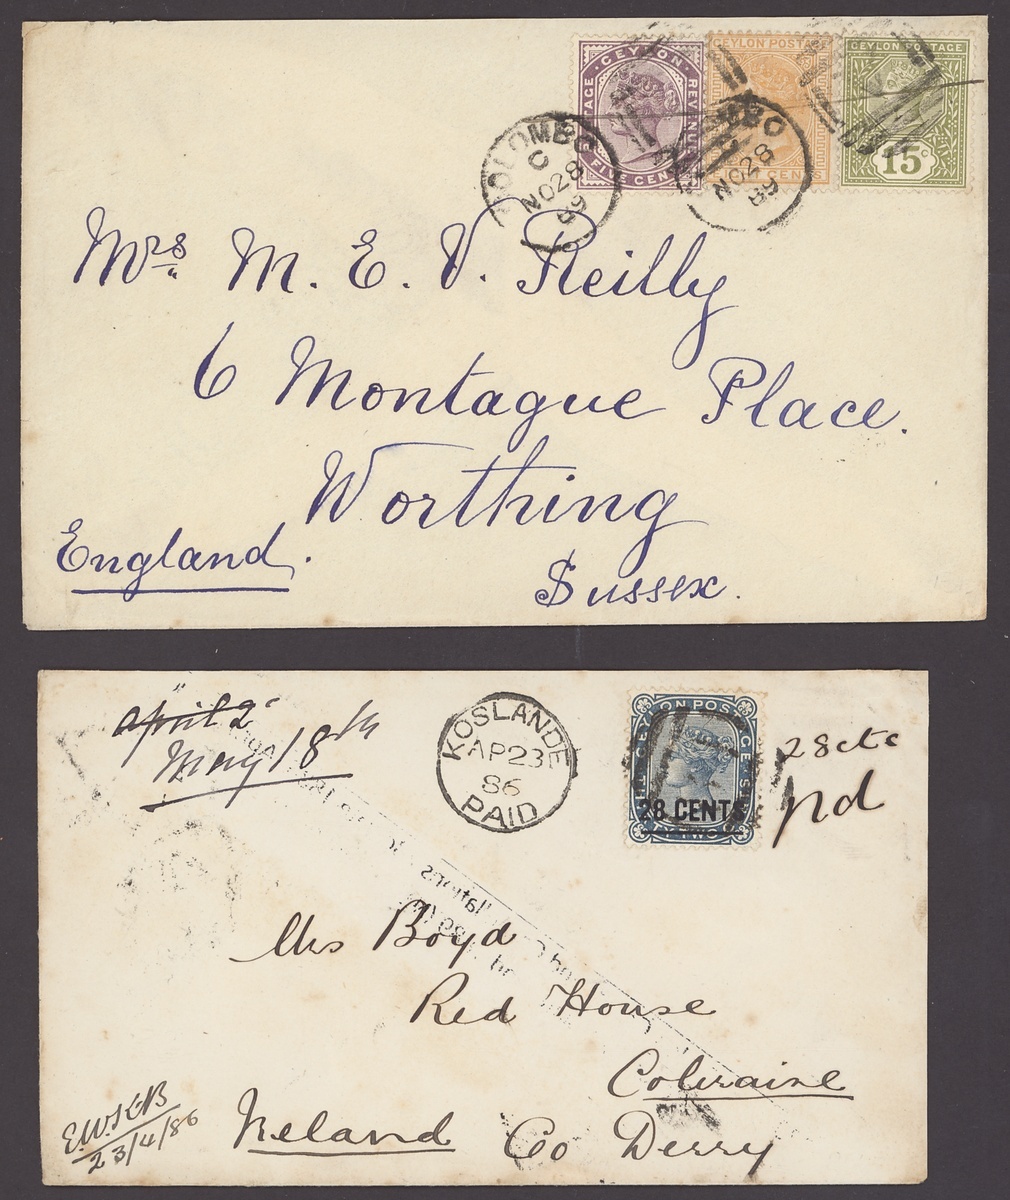 CEYLON
POSTAGE
REVENUE
FIVE CENTS
CEYLON POSTAGE
CENTS
CEYLON POSTAGE
15c
COLOMBO
C
NO 28
89
NO 28
89
Mrs M. E. V. Reilly
6 Montague Place.
Worthing
Sussex.
England.
April 2
May 18th
KOSLANDE
AP 23
86
PAID
CEYLON POSTAGE
28 CENTS
28 cts
pd
Mrs Boyd
Red House
Colraine
Co Derry
Ireland
E.W.S.K.B
23/4/86